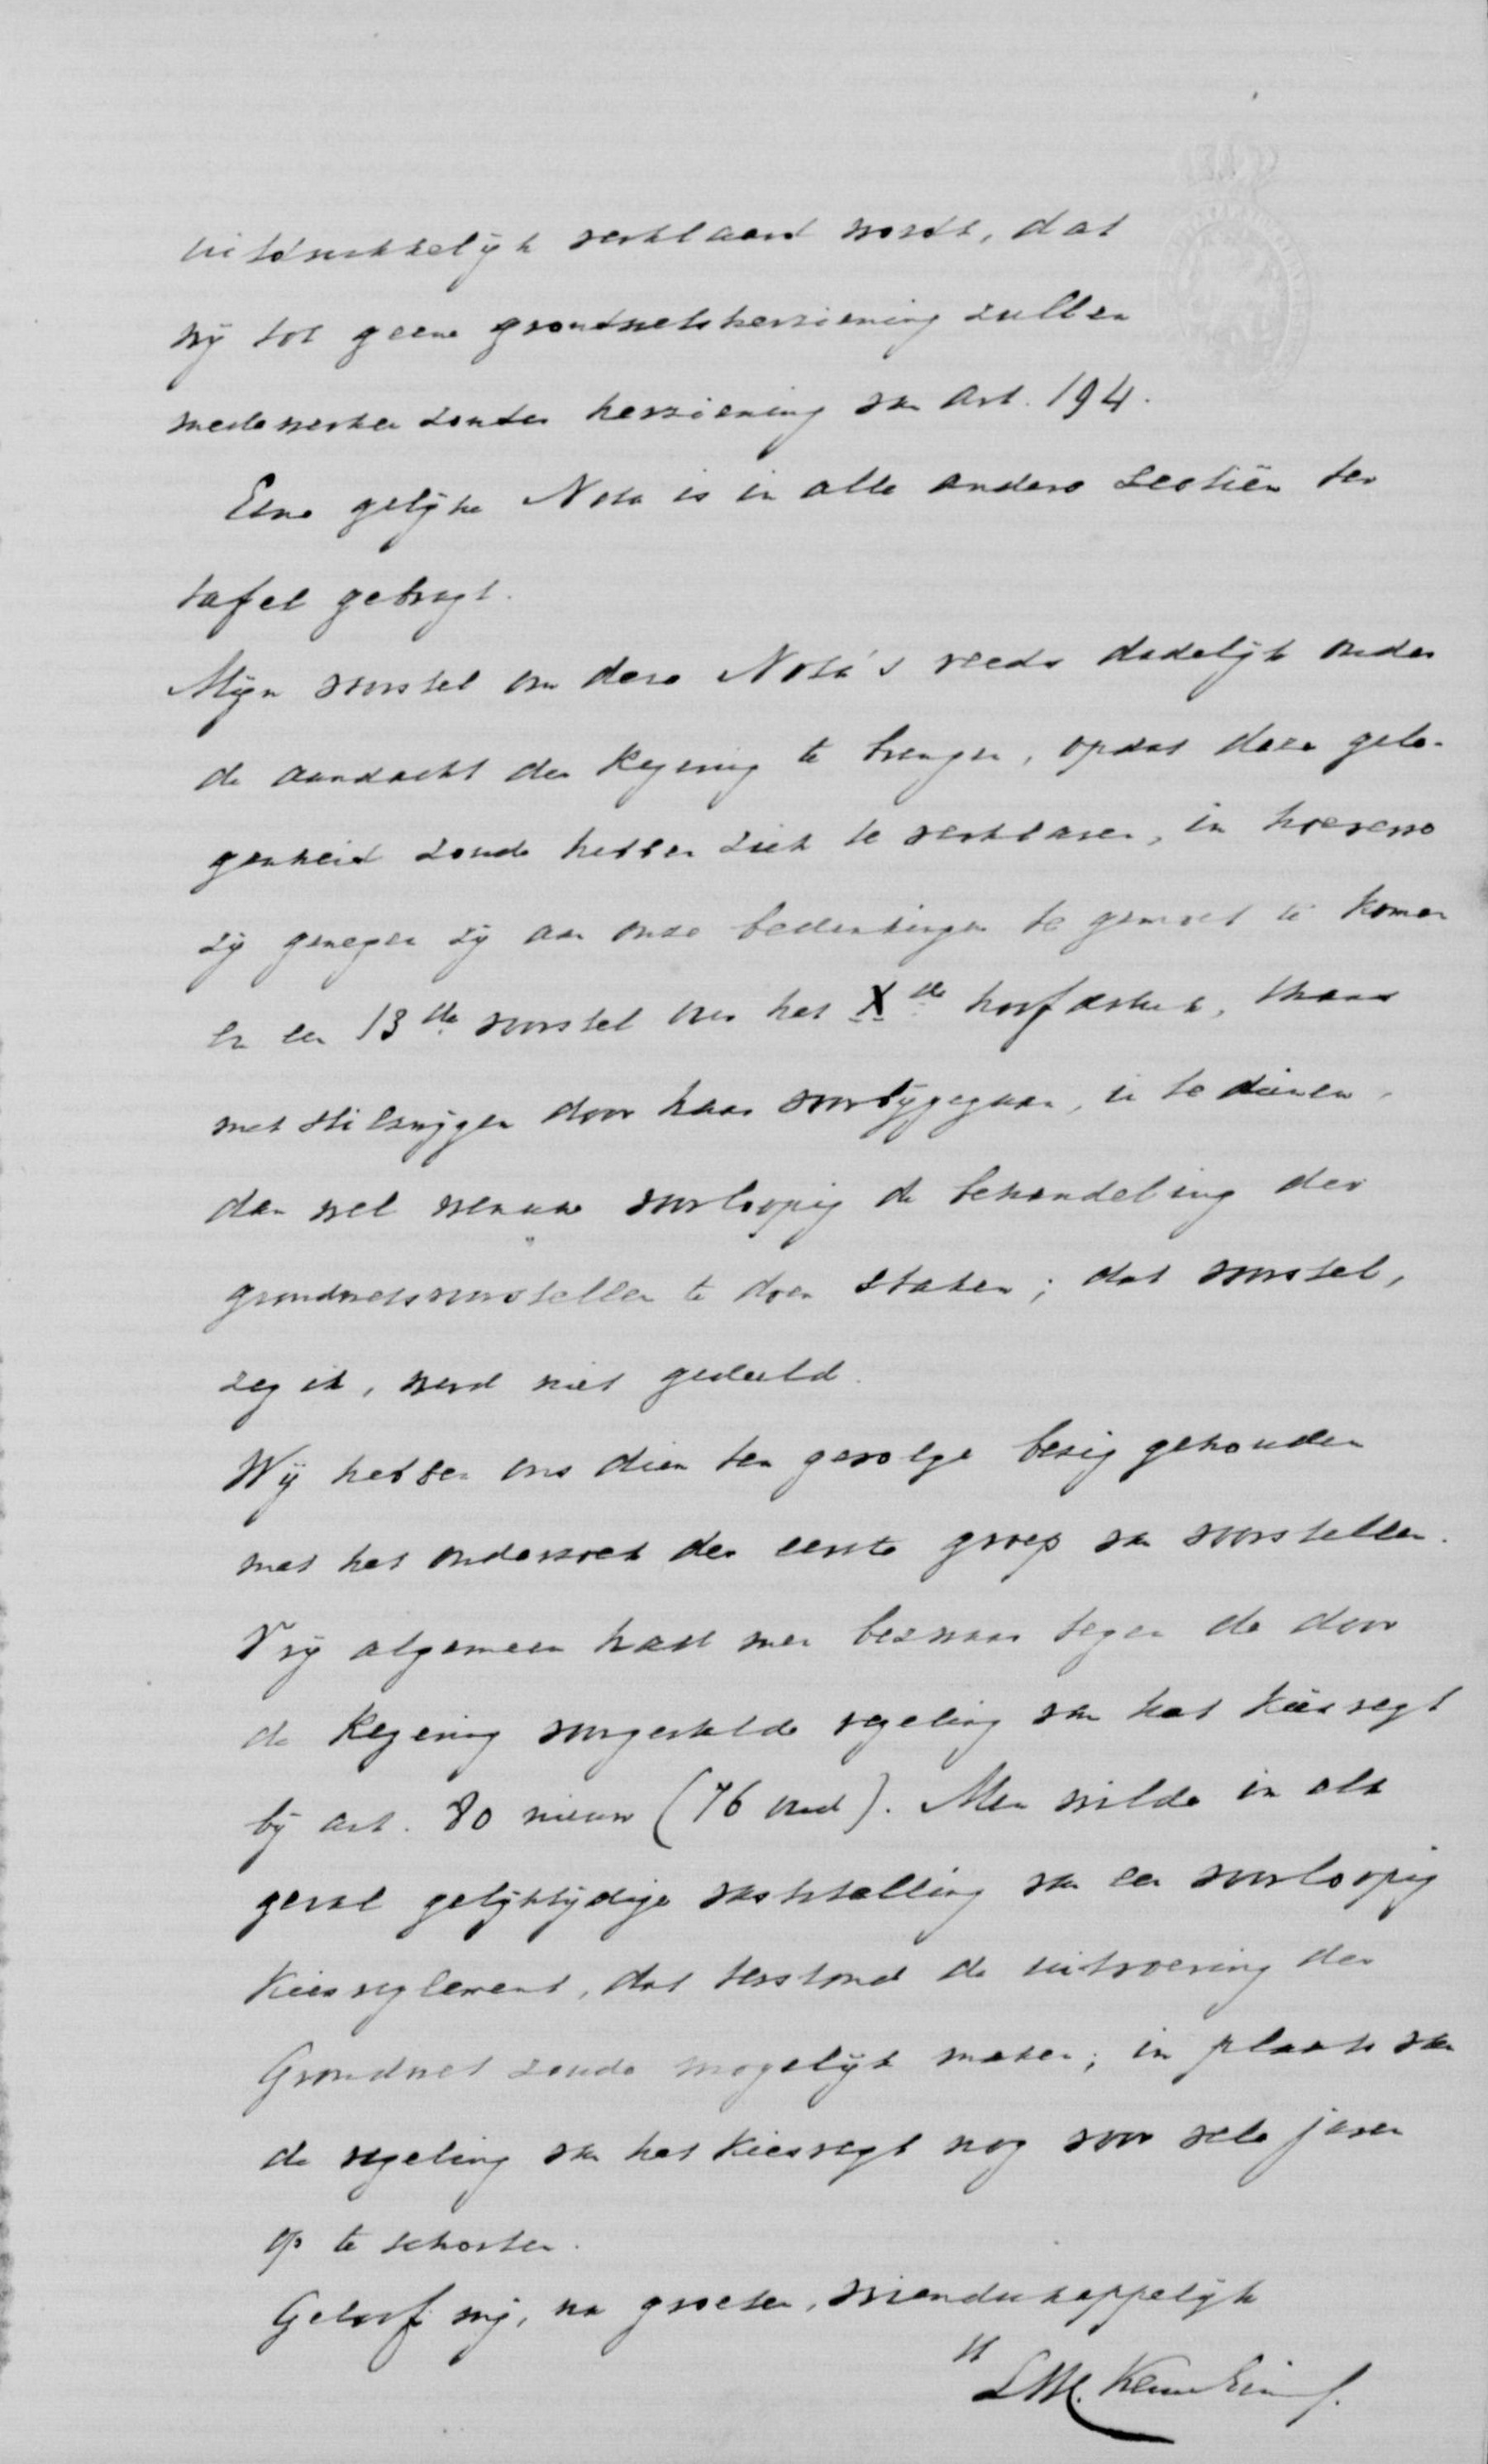 uitdrukkelijk verklaard wordt, dat
wij tot geene grondwetsherziening zullen
medewerken zonder herziening van Art. 194.
Eene gelijke Nota is in alle andere Sectiën ter
tafel gebragt.
Mijn voorstel om deze Nota's reeds dadelijk onder
de aandacht der Regering te brengen, opdat deze gele-
genheid zoude hebben zich te verklaren, in hoeverre
zij genegen zij aan onze bedenkingen te gemoet te komen
en een 13de voorstel over het Xde hoofdstuk, thans
met stilzwijgen door haar voorbijgegaan, in te dienen,
dan wel vooraf voorloopig de behandeling der
grondwetsvoorstellen te doen staken; dat voorstel,
zeg ik, werd niet geduld.
Wij hebben ons dien ten gevolge bezig gehouden
met het onderzoek der eerste groep van voorstellen.
Vrij algemeen had men bezwaar tegen de door
de Regering voorgestelde regeling van het Kiesregt
bij art. 80 nieuw (76 oud). Men wilde in elk
geval gelijktijdige vaststelling van een voorloopig
Kiesreglement, dat terstond de uitvoering der
Grondwet zoude mogelijk maken; in plaats van
de regeling van het Kiesregt nog voor vele jaren
op te schorten.
Geloof mij, na groeten, vriendschappelijk
tt